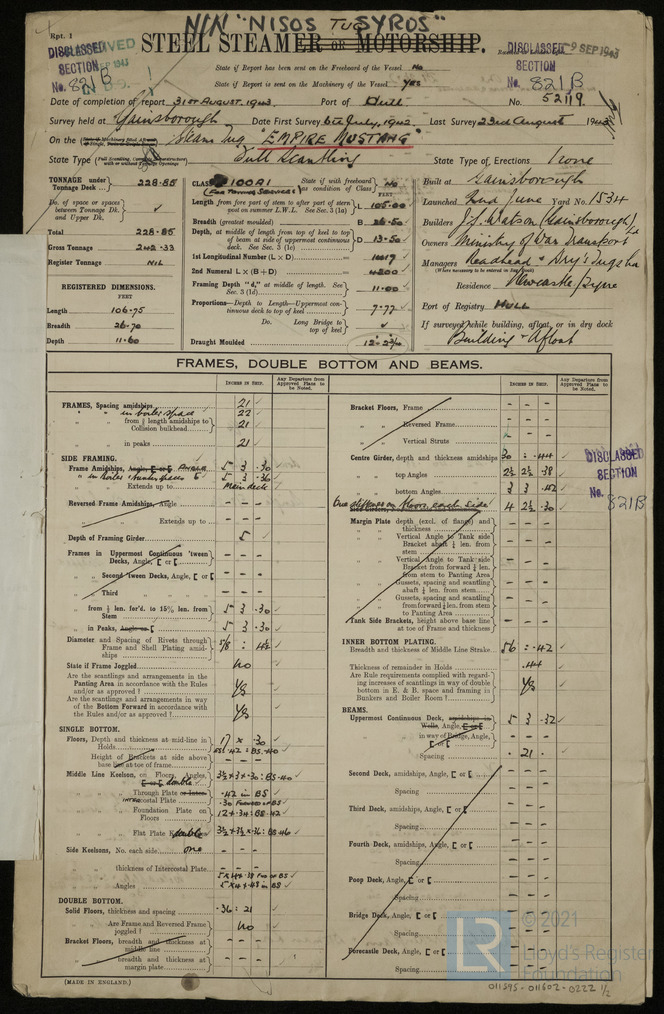 NIN "NISOS SYROS"
TUG
Rpt. 1
STEEL STEAMER OR MOTORSHIP.
DISCLASSED
SECTION
No. 821B
RECEIVED
DISCLASSED
SECTION
No. 821B
9 SEP 1943
State if Report has been sent on the Freeboard of the Vessel No
State if Report is sent on the Machinery of the Vessel Yes
Date of completion of report 31st August 1943. Port of Hull No. 52119
Survey held at Gainsborough Date First Survey 6th July, 1942 Last Survey 23rd August 1943
On the Steam Tug "EMPIRE MUSTANG"
State Type Full Scantling State Type of Erections None
TONNAGE under Tonnage Deck ... 228.85
Do. of space or spaces between Tonnage Dk. and Upper Dk.
Total 228.85
Gross Tonnage 242.33
Register Tonnage NIL
REGISTERED DIMENSIONS.
FEET
Length 106.75
Breadth 26.70
Depth 11.60
CLASS 100A1 State if with freeboard as condition of Class No
(For Towing Services)
FEET
Length from fore part of stem to after part of stern post on summer L.W.L. See Sec. 3 (1a) L 105.00
Breadth (greatest moulded) B 26.50
Depth, at middle of length from top of keel to top of beam at side of uppermost continuous deck. See Sec. 3 (1c) D 13.50
1st Longitudinal Number (L × D) 1417
2nd Numeral L × (B + D) 4200
Framing Depth "d," at middle of length. See Sec. 3 (1d) 11.00
Proportions—Depth to Length—Uppermost continuous deck to top of keel 7.77
Do. Long Bridge to top of keel
Draught Moulded
Built at Gainsborough
Launched 2nd June Yard No. 1534
Builders J.S. Watson (Gainsborough) Ltd
Owners Ministry of War Transport
Managers
(Where necessary to be entered in Reg. Book)
Residence Newcastle/Tyne
Port of Registry HULL
If surveyed while building, afloat, or in dry dock
Building & Afloat
FRAMES, DOUBLE BOTTOM AND BEAMS.
INCHES IN SHIP. Any Departure from Approved Plans to be Noted.
FRAMES, Spacing amidships 21
" " in boiler space 22
" " from ⅓ length amidships to Collision bulkhead 21
" " in peaks 21
SIDE FRAMING.
Frame Amidships, Angle 5 3 .30
" in boiler & bunker space 5 3 .36
" Extends up to Main deck
Reversed Frame Amidships, Angle - - -
" " Extends up to - - -
Depth of Framing Girder 5
Frames in Uppermost Continuous 'tween Decks, Angle, [ or [ - - -
" Second 'tween Decks, Angle, [ or [ - - -
" Third " " " " - - -
" from ⅓ len. for'd. to 15% len. from Stem 5 3 .30
" in Peaks, Angle or [ 5 3 .30
Diameter and Spacing of Rivets through Frame and Shell Plating amidships 5/8 : 4½
State if Frame Joggled No
Are the scantlings and arrangements in the Panting Area in accordance with the Rules and/or as approved ? Yes
Are the scantlings and arrangements in way of the Bottom Forward in accordance with the Rules and/or as approved ? Yes
SINGLE BOTTOM.
Floors, Depth and thickness at mid-line in Holds 17 × .30
Height of Brackets at side above base line at toe of frame
Middle Line Keelson, on Floors, Angles, [ or [ double 3½ × 3 × .30 : BS .40
" " Through Plate or Intercostal Plate .42 in BS
" " Foundation Plate on Floors 12 × .34 : BS .42
" " Flat Plate Keel double
Side Keelsons, No. each side one
" " thickness of Intercostal Plate
" " Angles
DOUBLE BOTTOM.
Solid Floors, thickness and spacing .36 : 21
" " Are Frame and Reversed Frame joggled ? No
Bracket Floors, breadth and thickness at middle line - - -
" " breadth and thickness at margin plate - - -
INCHES IN SHIP. Any Departure from Approved Plans to be Noted.
Bracket Floors, Frame - - -
" " Reversed Frame - - -
" " Vertical Struts - -
Centre Girder, depth and thickness amidships 30 : .44
" " top Angles 2½ 2½ .38
" " bottom Angles 3 3 .42
two stiffeners on floors, each side 4 2½ .30
Margin Plate depth (excl. of flange) and thickness
" " Vertical Angle to Tank side Bracket abaft ¼ len. from stem
" " Vertical Angle to Tank side Bracket from forward ¼ len. from stem to Panting Area
" " Gussets, spacing and scantling abaft ¼ len. from stem
" " Gussets, spacing and scantling from forward ¼ len. from stem to Panting Area
Tank Side Brackets, height above base line at toe of Frame and thickness
INNER BOTTOM PLATING.
Breadth and thickness of Middle Line Strake 56 : .42
Thickness of remainder in Holds .44
Are Rule requirements complied with regarding increases of scantlings in way of double bottom in E. & B. space and framing in Bunkers and Boiler Room ? Yes
BEAMS.
Uppermost Continuous Deck, amidships in Wells, Angle, [ or [ 5 3 .32
" " in way of Bridge, Angle, [ or [ - - -
Spacing 21
Second Deck, amidships, Angle, [ or [ - - -
Spacing - - -
Third Deck, amidships, Angle, [ or [ - - -
Spacing - - -
Fourth Deck, amidships, Angle, [ or [ - - -
Spacing - - -
Poop Deck, Angle, [ or [ - - -
Spacing - - -
Bridge Deck, Angle, [ or [ - - -
Spacing - - -
Forecastle Deck, Angle, [ or [ - - -
Spacing - - -
DISCLASSED
SECTION
No. 821B
(MADE IN ENGLAND.)
LR © 2021
Lloyd's Register
Foundation
011595-011602-0222 1/2